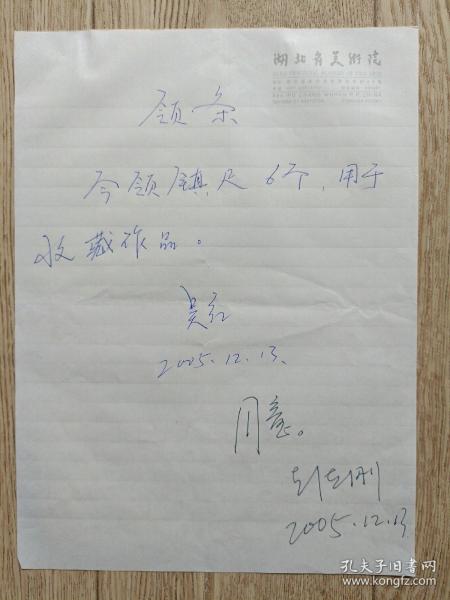 湖北省美術院
领条
今领镇尺6个,用于
收藏作品。
吴红
2005.12.13.
同意。
2005.12.13
孔夫子旧书网
www.kongfz.com